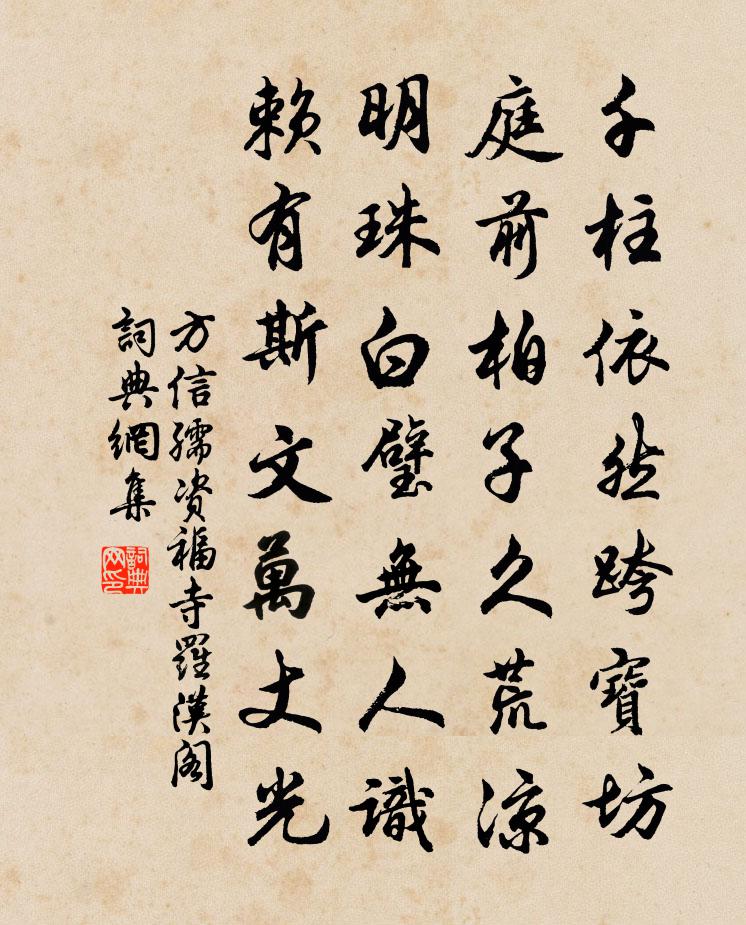 千柱依然跨寶坊
庭前柏子久荒涼
明珠白璧無人識
賴有斯文萬丈光
方信孺資福寺羅漢閣
詞典網集
詞典網印